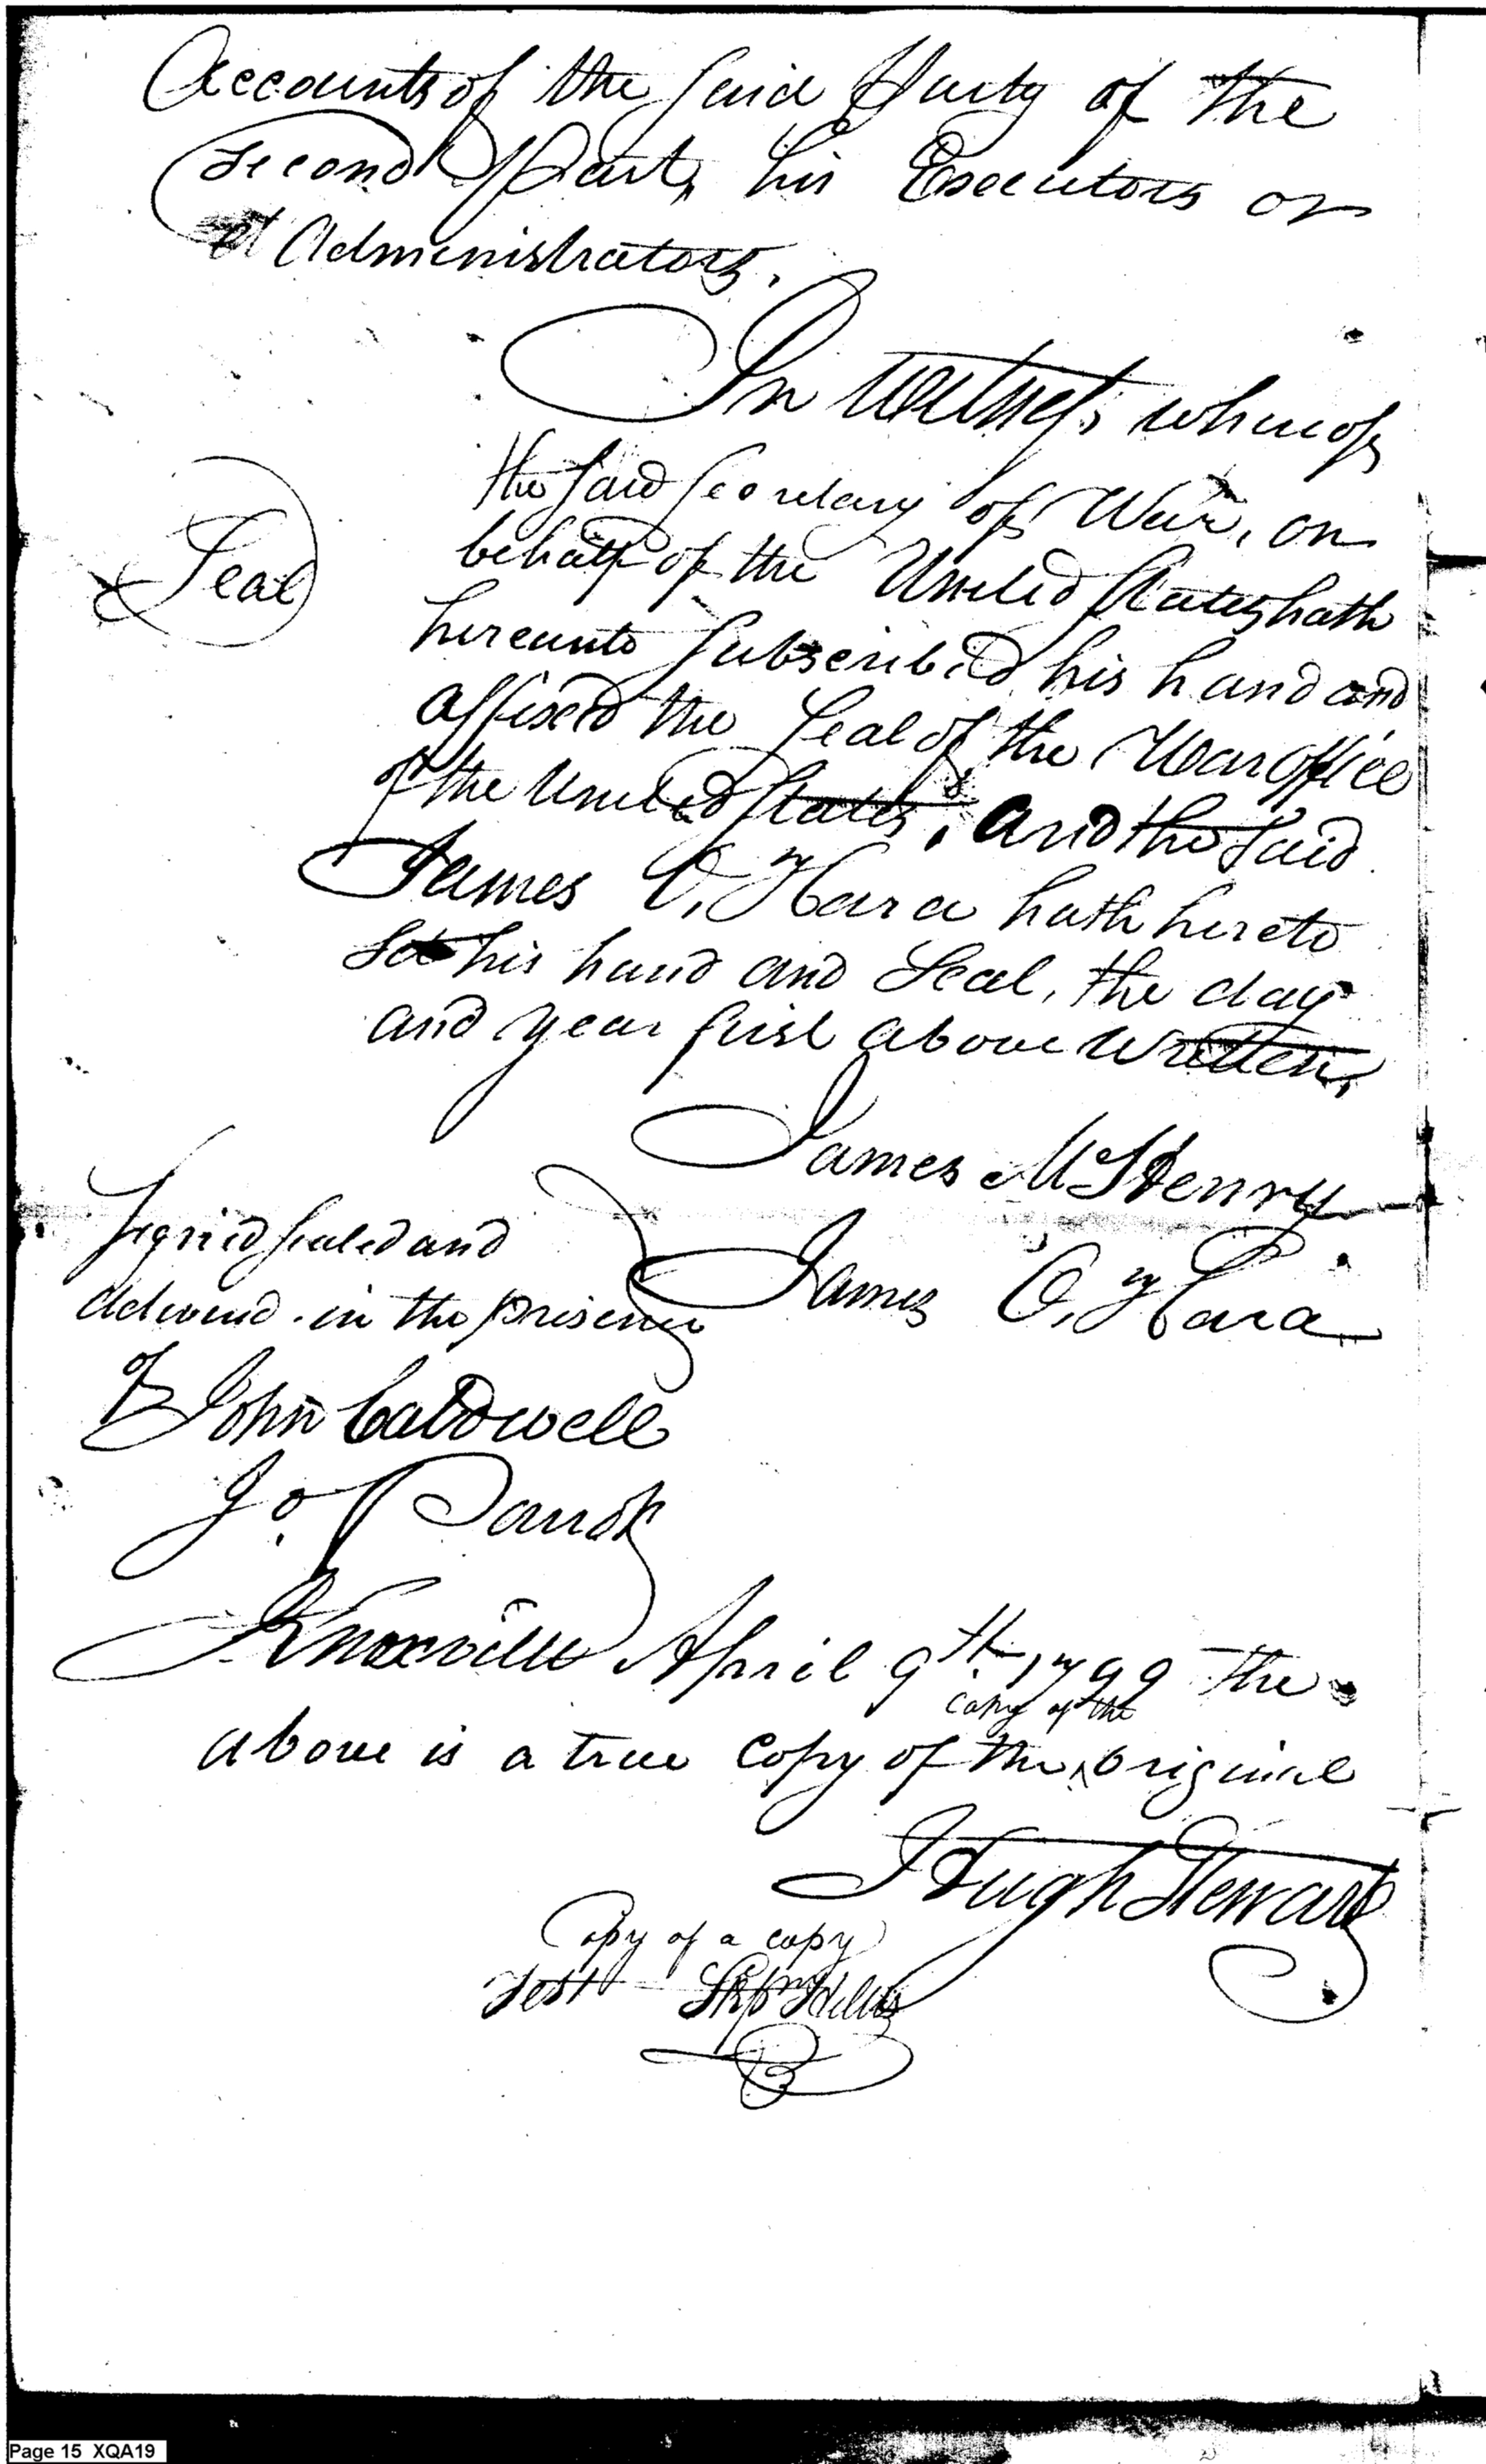 Accounts of the said Party of the
second Part, his Executors or
Administrators.
In Witness whereof
the said Secretary of War, on
behalf of the United States hath
Seal
hereunto subscribed his hand and
affixed the Seal of the War office
of the United States, and the said
James O, Hara hath hereto
set his hand and Seal, the day
and year first above written,
James McHenry
Signed sealed and
James O, Hara
delivered in the presence
of John Caldwell
Jo.
Knoxville April 9th 1799 the
copy of the
above is a true Copy of the ^ original
Hugh Stewart
Copy of a copy
Test
Page 15 XQA19